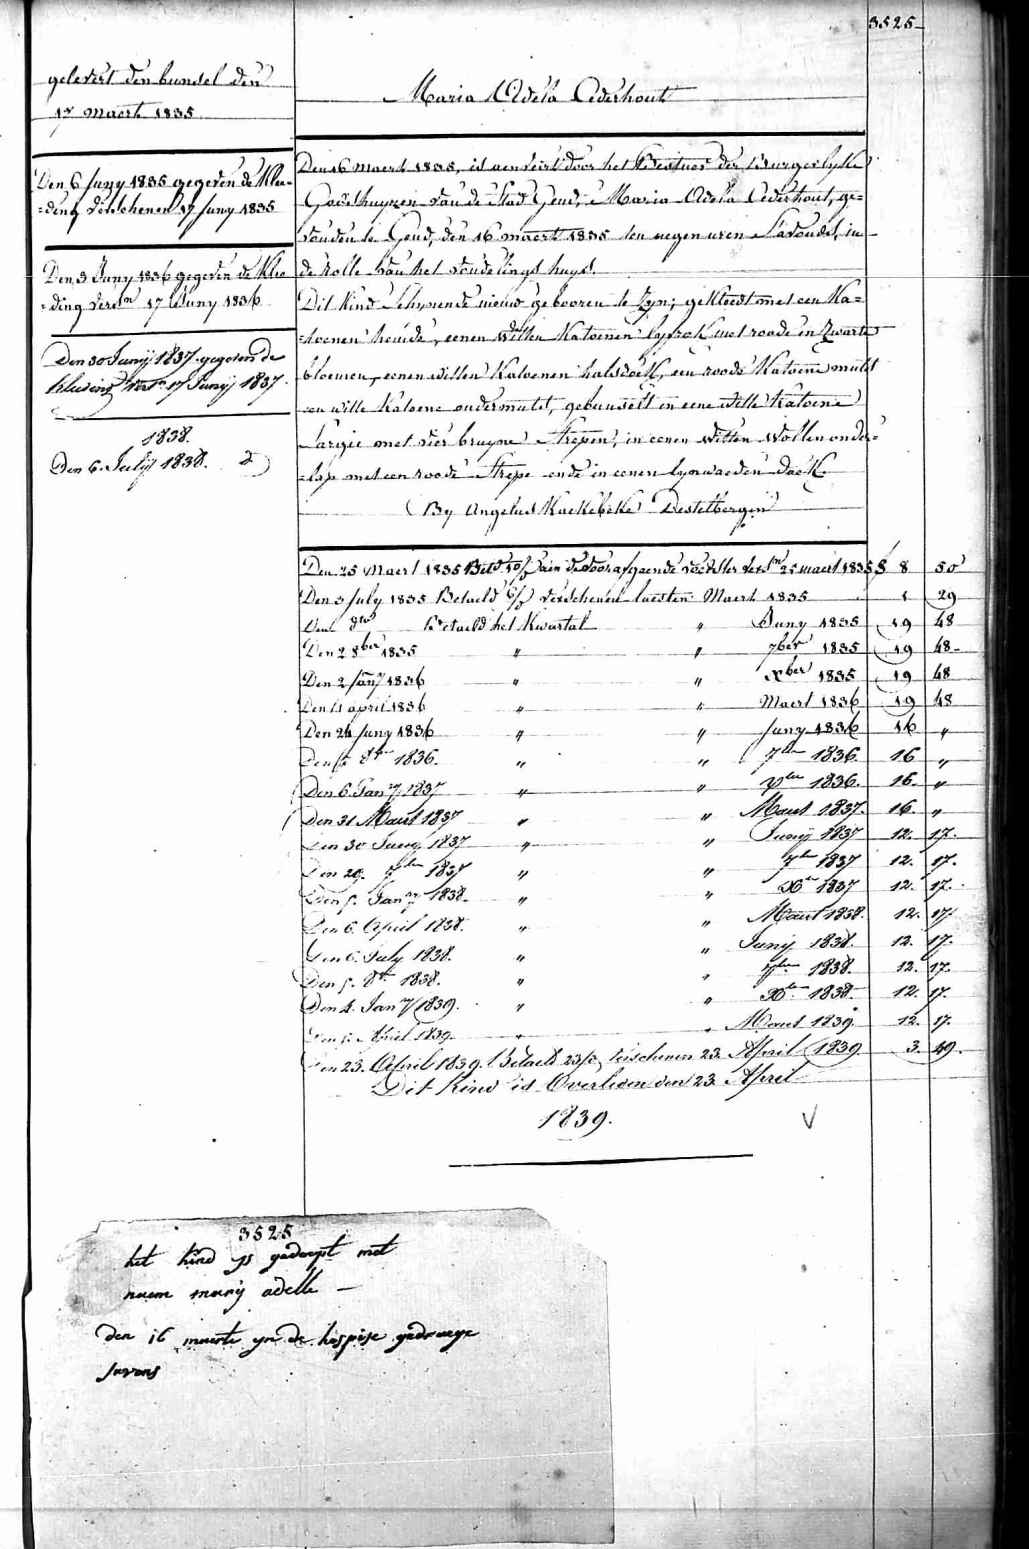 3525
gelevert den bundel den
17 maert 1835
Den 6 Juny 1835 gegeven de klee-
=ding verschenen 17 Juny 1835
Den 3 Juny 1836 gegeven de klee
=ding versn 17 Juny 1836
Den 30 Junij 1837. gegeven de
kleeding versn 17 Junij 1837.
1838.
Den 6. Julij 1838.
Maria Adela Cederhout
Den 16 maert 1835, is aenveirt door het Bestuer der burgerlyke
Godshuyzen van de Stad Gend, Maria Adela Cederhout, ge-
vonden te Gend, den 16 maert 1835 ten negen uren s'avonds, in
de rolle van het vondelings huys.
Dit kind schynende nieuw gebooren te zyn; gekleedt met een ka=
=toenen hemde, eenen witten katoenen lyfrok met roode en zwarte
bloemen, eenen witten katoenen halsdoek, een roode katoene muts
een witte katoene ondermuts, gebunselt in eene witte katoene
sargie met vier bruyne strepen, in eenen witten wollen onder=
=lap met een roode strepe ende in eenen lynwaeden doek.
By Angelus Kaekebeke Destelbergen
Den 25 Maert 1835 Betd 10/d aen de voorafgaende voedster versn 25 maert 1835 8 50
Den 3 July 1835 Betaeld 6/d verschenen laesten Maert 1835 1 29
Den dto Betaeld het kwartal " Juny 1835 19 48
Den 2 8ber 1835 " " 7ber 1835 19 48
Den 2 Jany 1836 " " Xber 1835 19 48
Den 4 april 1836 " " Maert 1836 19 48
Den 24 Juny 1836 " " Juny 1836 16 "
Den 8ber 1836. " " 7ber 1836. 16 "
Den 6. Jany 1837 " " Xber 1836. 16. "
Den 31 Maert 1837 " " Maert 1837. 16. "
Den 30 Junij 1837 " " Junij 1837 12. 17.
Den 29. 7ber 1837 " " 7ber 1837 12. 17.
Den 5. Jany 1838. " " Xber 1837 12. 17.
Den 6. April 1838. " " Maert 1838. 12. 17.
Den 6. July 1838. " " Junij 1838. 12. 17.
Den 5. 8ber 1838. " " 7ber 1838. 12. 17.
Den 4. Jany 1839. " " Xber 1838. 12. 17.
Den 5. April 1839. " " Maert 1839. 12. 17.
Den 23. April 1839. Betaeld 23/d verschenen 23. April 1839 3. 49.
Dit Kind is Overleden den 23 April
1839.
3525
het kind ys gedoopt met
naem marij adelle —
den 16 maerte yn de hospise gedraege
savons